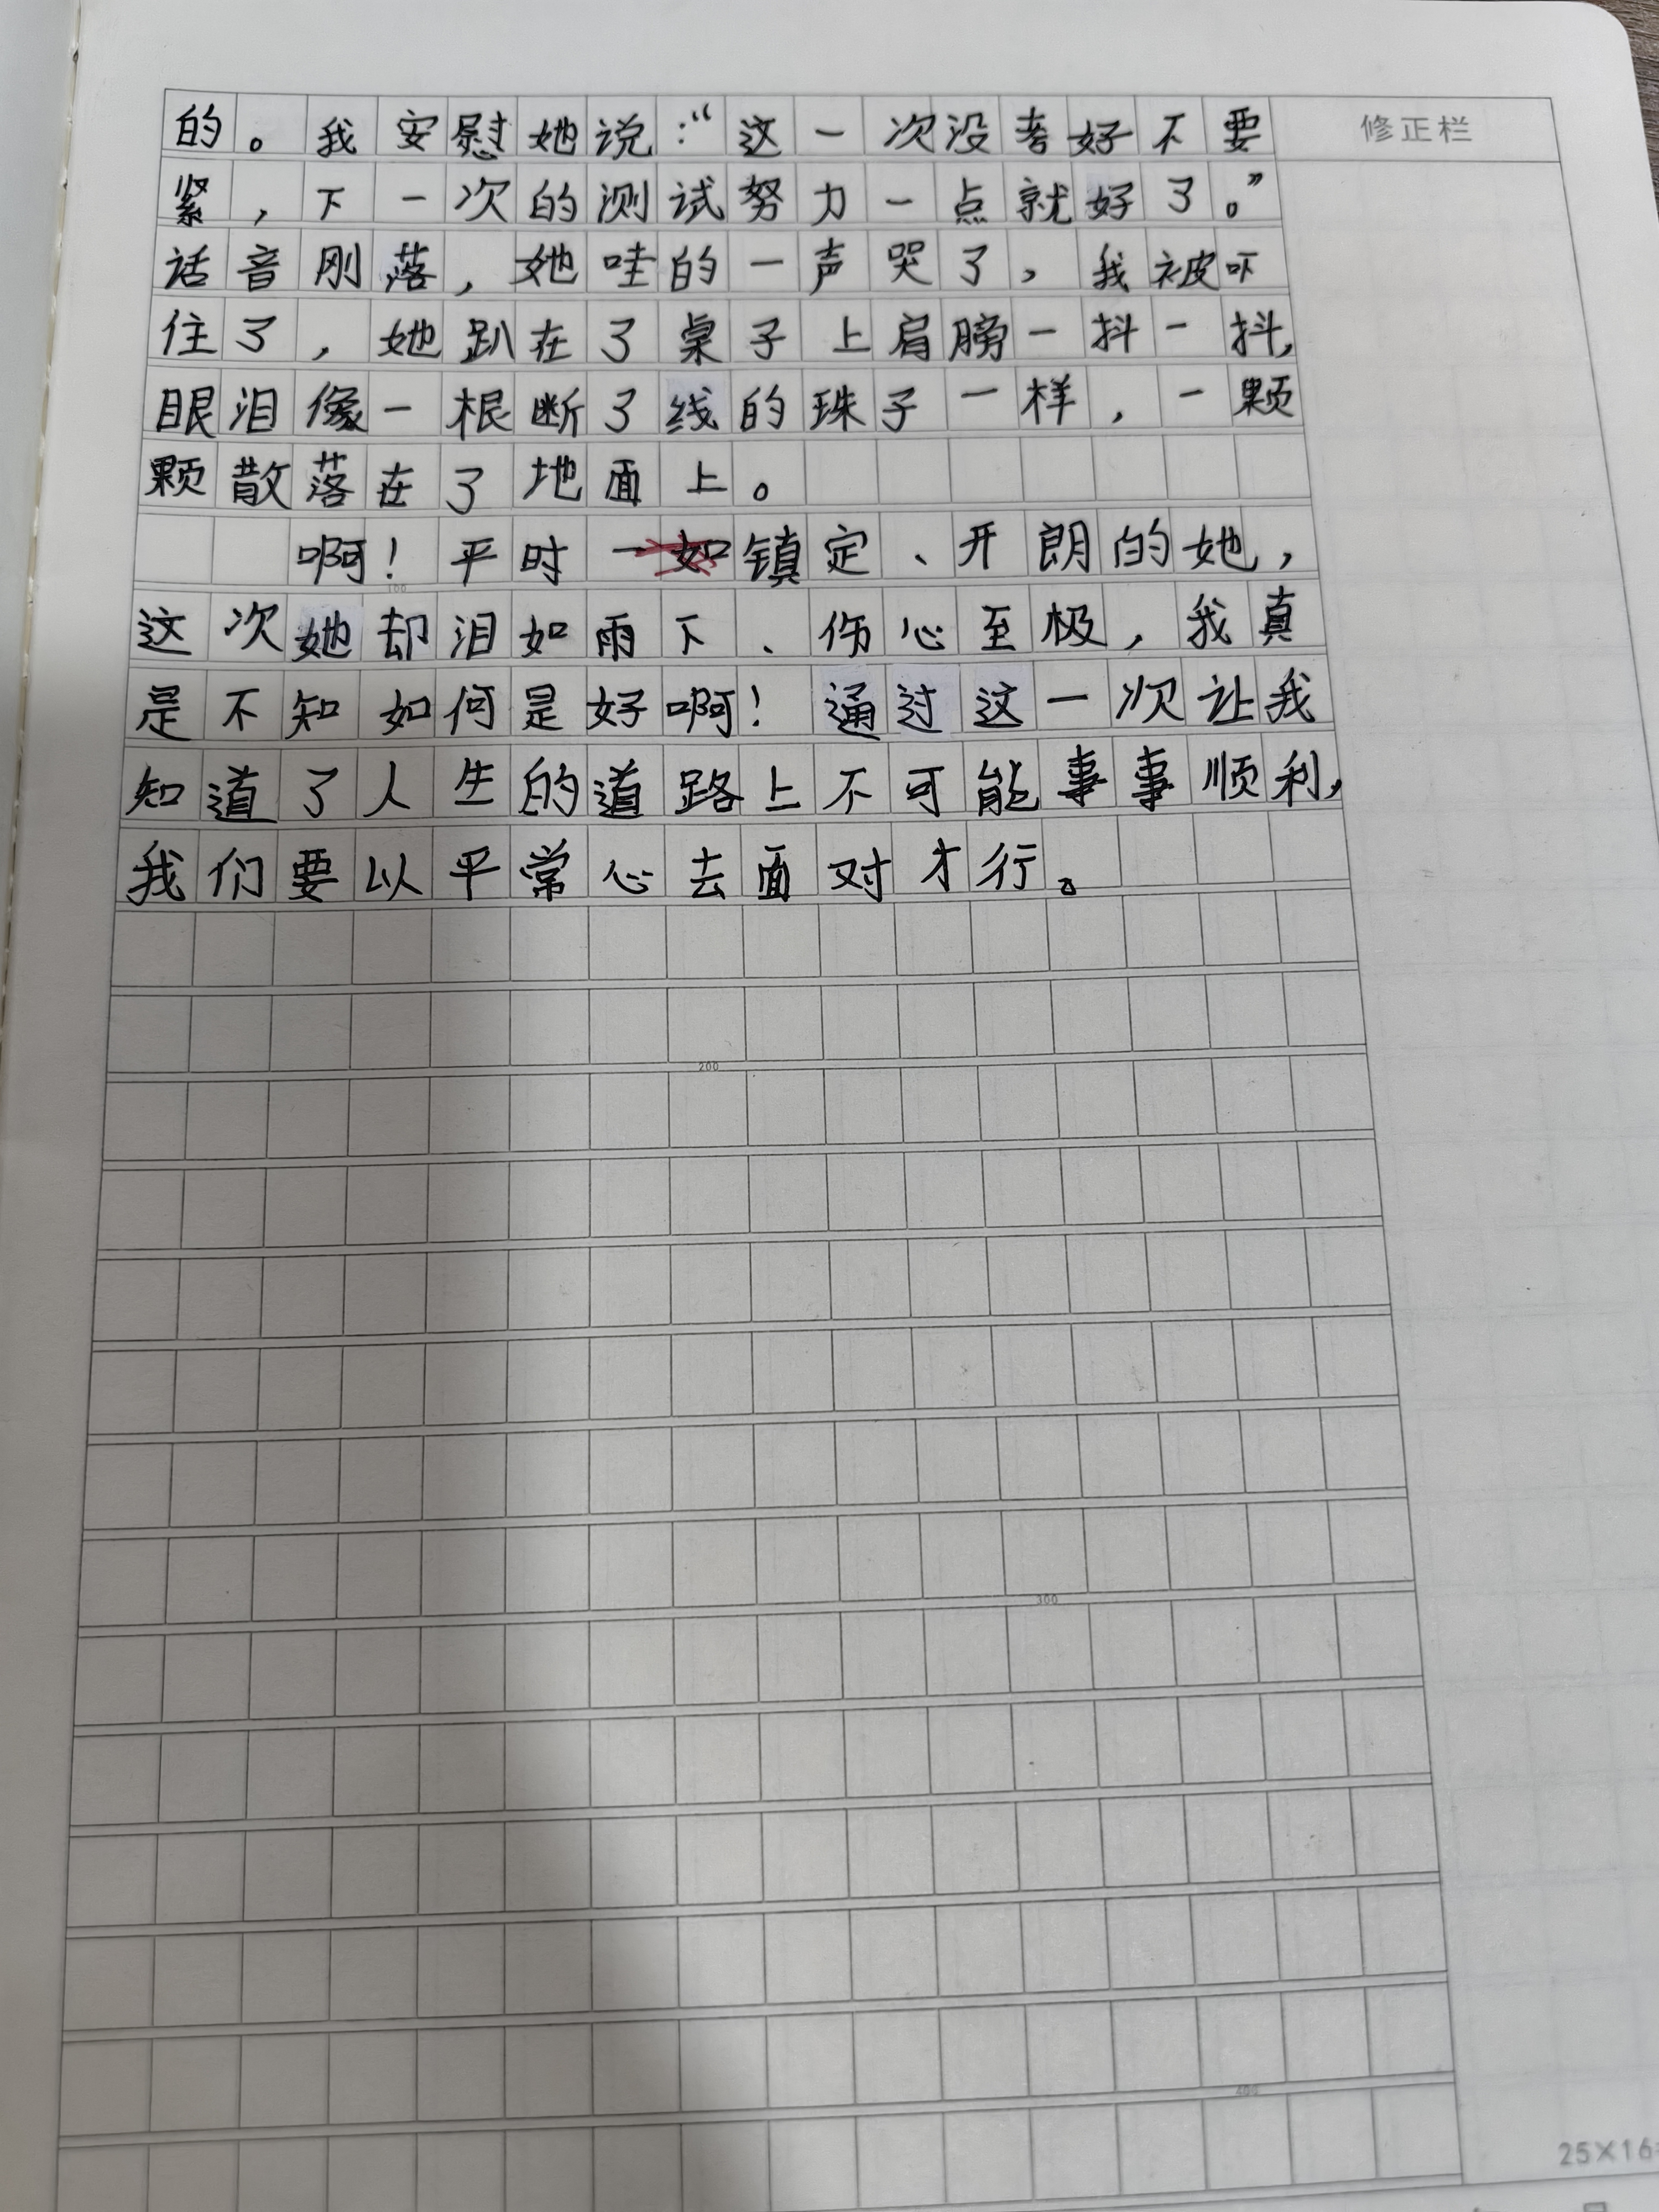 的。我安慰她说：“这一次没考好不要
修正栏
紧，下一次的测试努力一点就好了。”
话音刚落，她哇的一声哭了，我被吓
住了，她趴在了桌子上肩膀一抖一抖，
眼泪像一根断了线的珠子一样，一颗
颗散落在了地面上。
啊！平时一如镇定、开朗的她，
100
这次她却泪如雨下、伤心至极，我真
是不知如何是好啊！通过这一次让我
知道了人生的道路上不可能事事顺利，
我们要以平常心去面对才行。
200
300
400
25×16